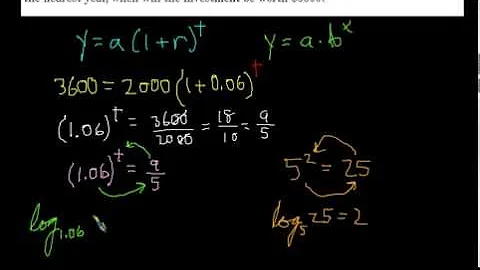 the nearest year, when will the investment be worth $3600?
y = a(1+r)^t
y = a·b^x
3600 = 2000(1+0.06)^t
(1.06)^t = 3600/2000 = 18/10 = 9/5
(1.06)^t = 9/5
5^2 = 25
log_1.06
log_5 25 = 2